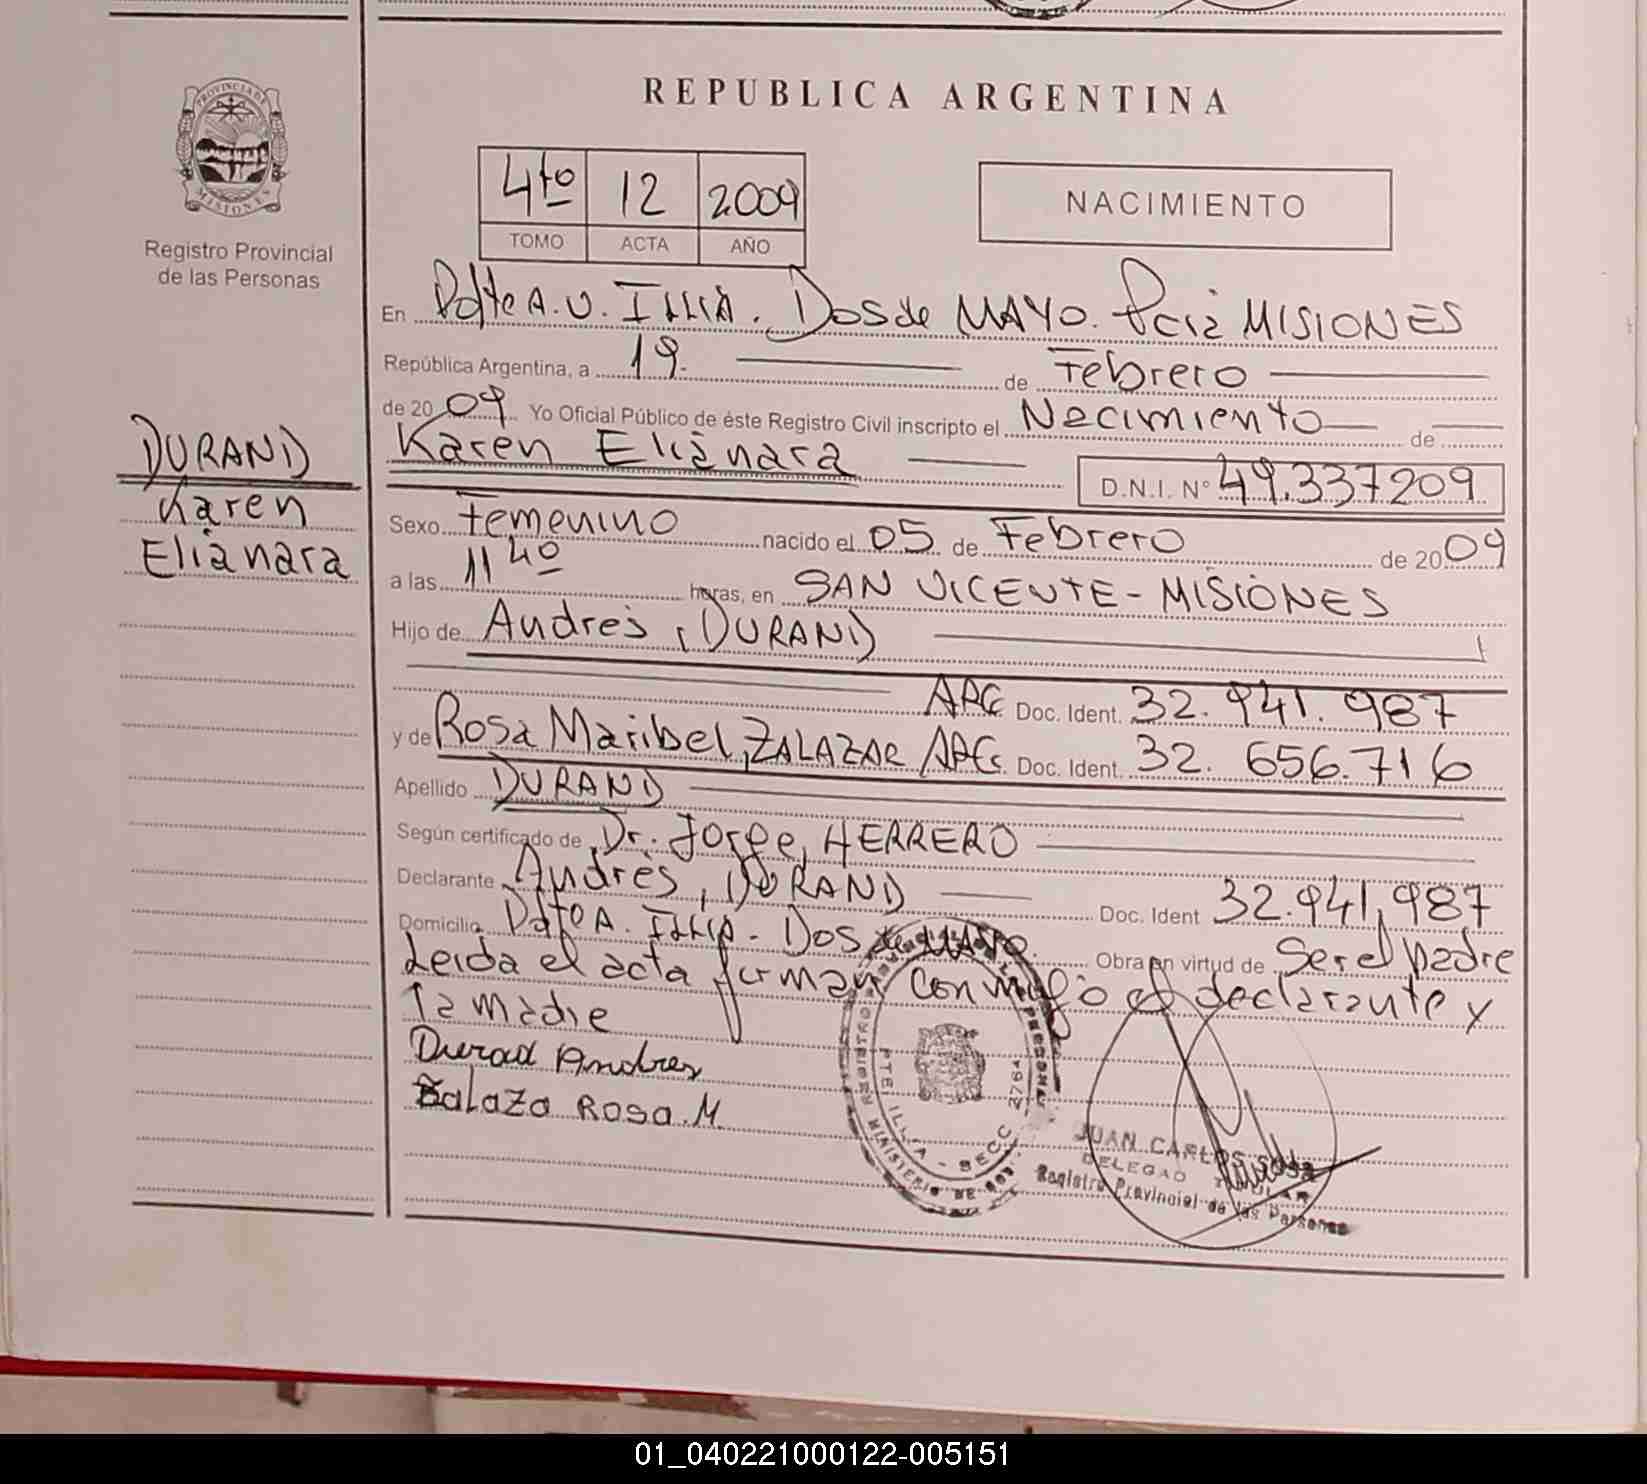 PROVINCIA DE
MISIONES
Registro Provincial
de las Personas
REPUBLICA ARGENTINA
4to 12 2009
TOMO ACTA AÑO
NACIMIENTO
En Pdte A. U. ILLIA. Dos de MAYO. Pcia MISIONES
República Argentina, a 19. de Febrero
de 2009 Yo Oficial Público de éste Registro Civil inscripto el Nacimiento de
Karen Elianara D.N.I. N° 49.337209
DURAND
Karen
Elianara
Sexo Femenino nacido el 05 de Febrero de 2009
a las 11 40 horas, en SAN VICENTE - MISIONES
Hijo de Andrés, DURAND
ARG Doc. Ident. 32.941.987
y de Rosa Maribel, ZALAZAR ARG. Doc. Ident. 32.656.716
Apellido DURAND
Según certificado de Dr. Jorge, HERRERO
Declarante Andrés, DURAND Doc. Ident 32.941.987
Domicilio Pdte A. ILLIA - Dos de MAYO. Obra en virtud de Ser el padre
Leida el acta firman conmigo el declarante y
la madre
Durad Andres
Zalaza Rosa.M
PTE ILLIA - SECC 2764
MINISTERIO DE
JUAN CARLOS SOSA
DELEGADO TITULAR
Registro Provincial de las Personas
01_040221000122-005151